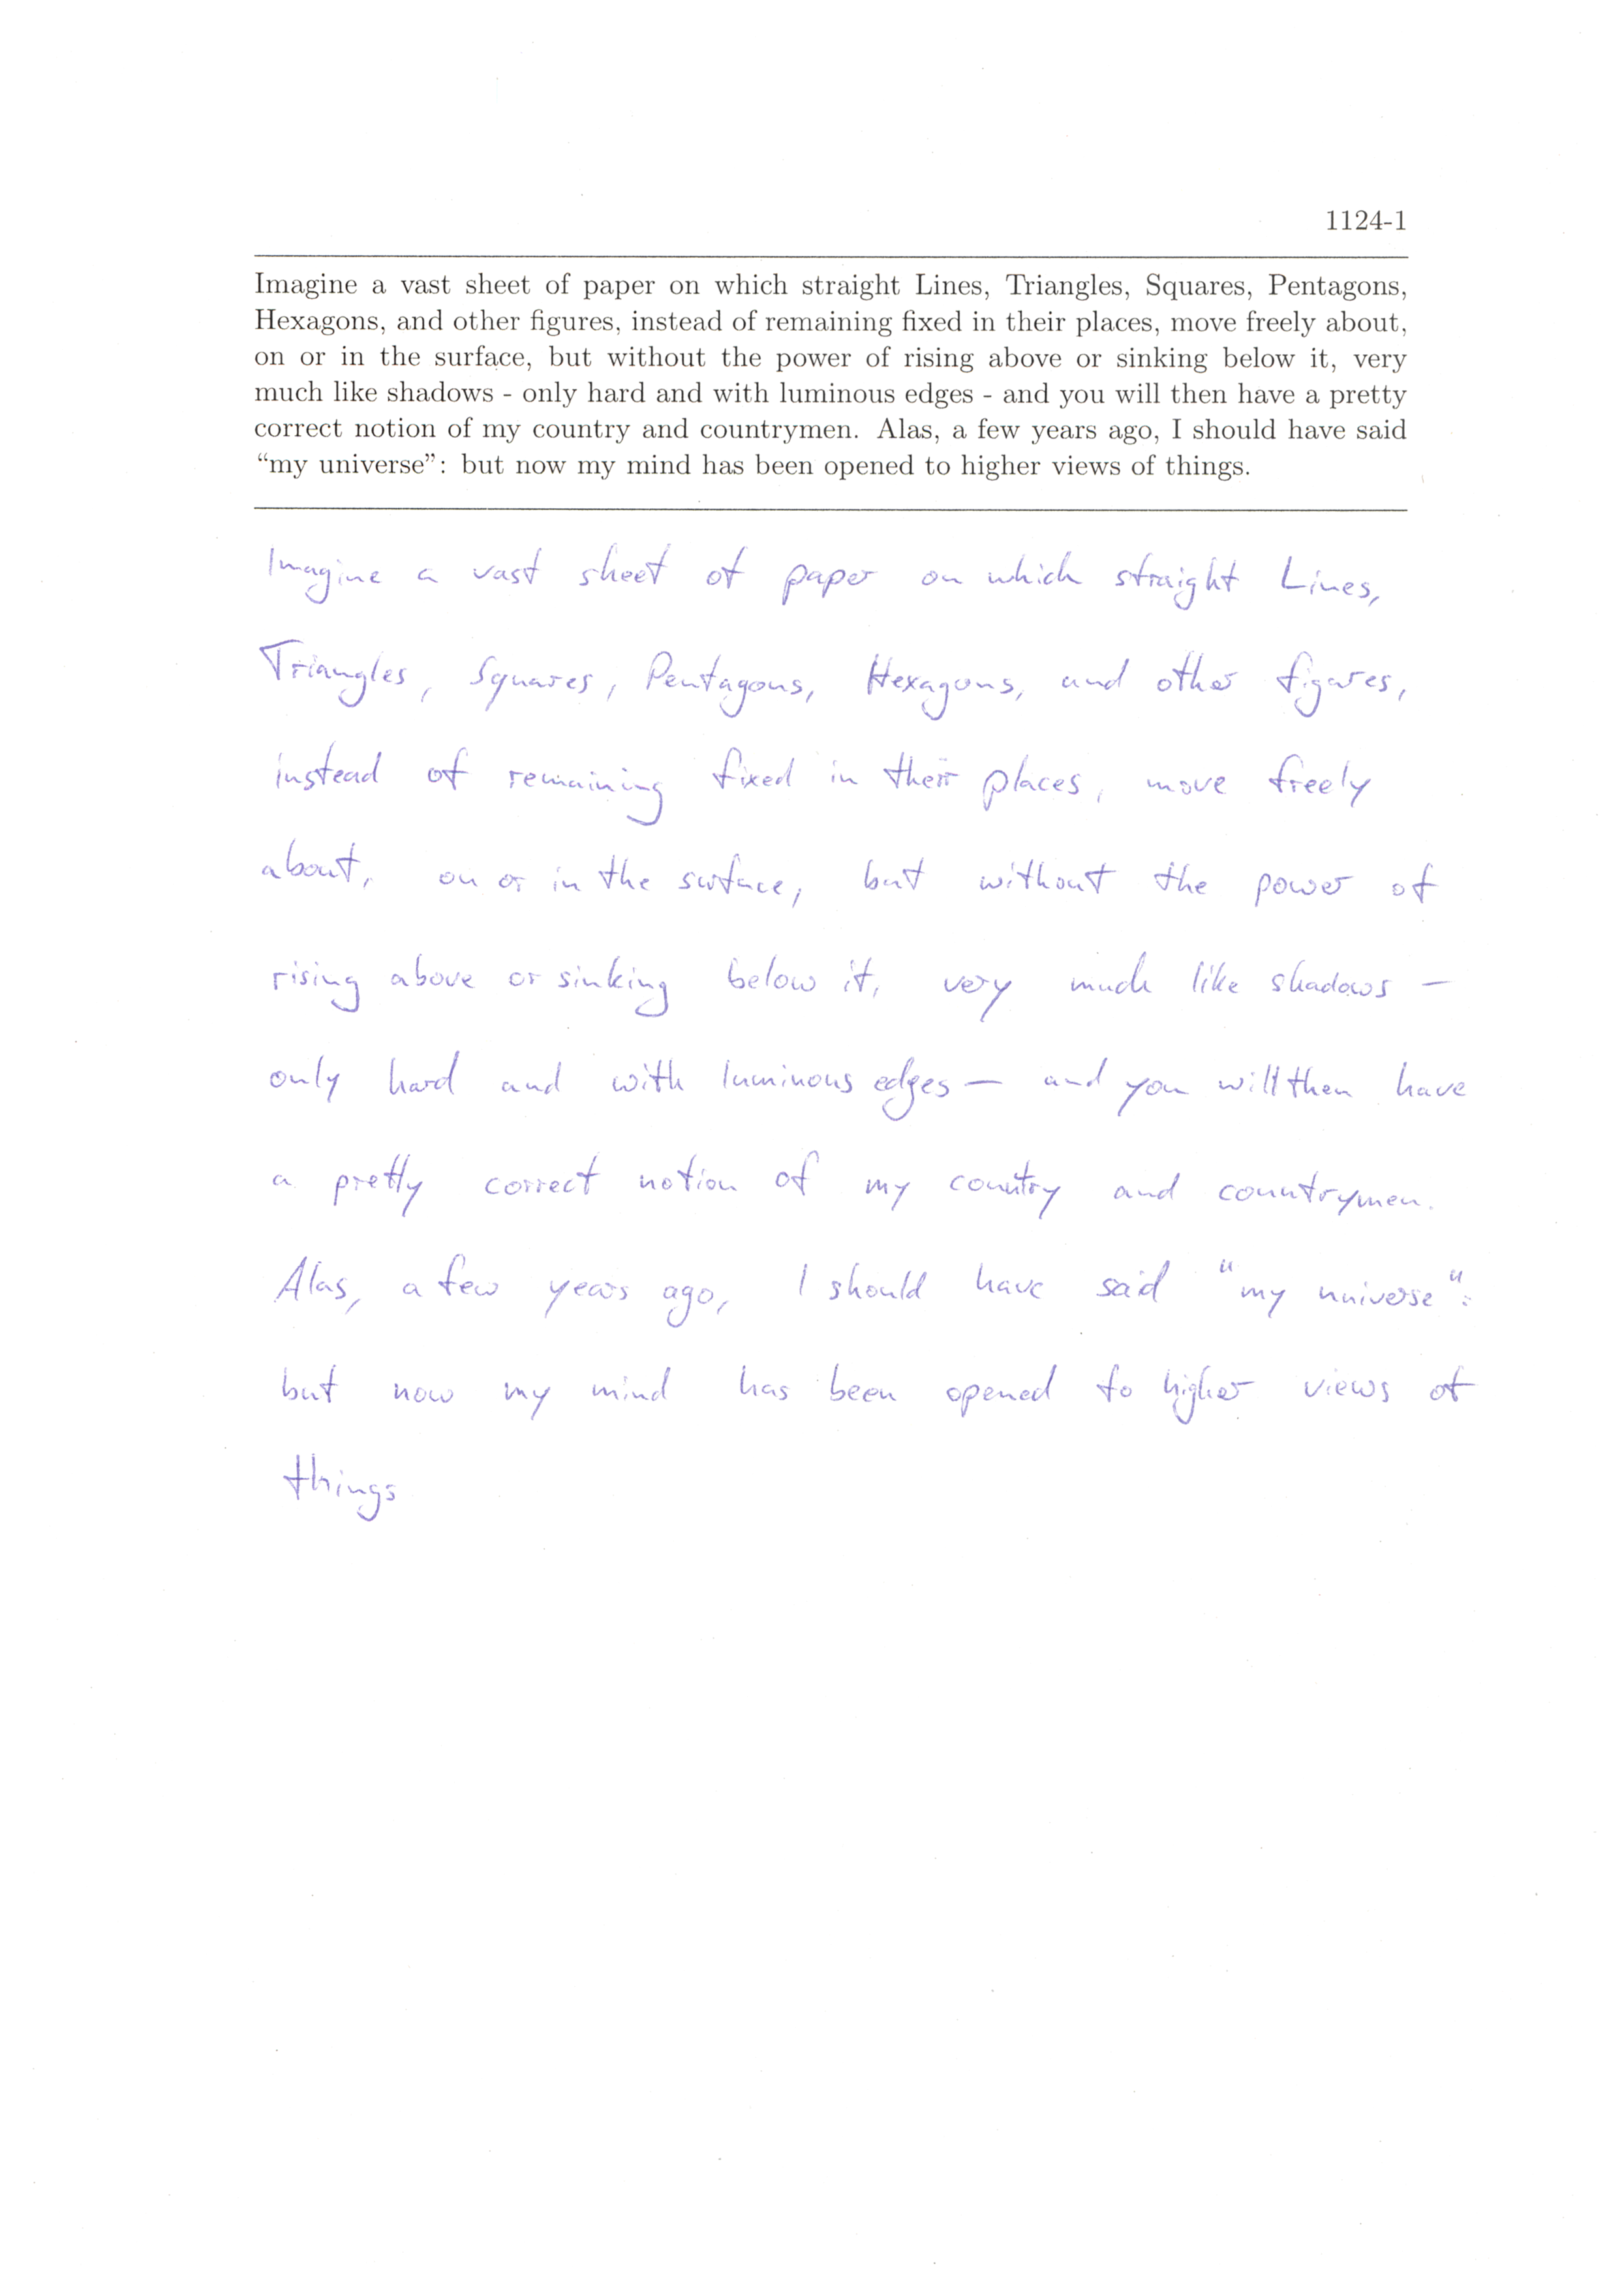 1124-1
Imagine a vast sheet of paper on which straight Lines, Triangles, Squares, Pentagons,
Hexagons, and other figures, instead of remaining fixed in their places, move freely about,
on or in the surface, but without the power of rising above or sinking below it, very
much like shadows - only hard and with luminous edges - and you will then have a pretty
correct notion of my country and countrymen. Alas, a few years ago, I should have said
“my universe”: but now my mind has been opened to higher views of things.
Imagine a vast sheet of paper on which straight Lines,
Triangles, Squares, Pentagons, Hexagons, and other figures,
instead of remaining fixed in their places, move freely
about, on or in the surface, but without the power of
rising above or sinking below it, very much like shadows —
only hard and with luminous edges — and you will then have
a pretty correct notion of my country and countrymen.
Alas, a few years ago, I should have said "my universe":
but now my mind has been opened to higher views of
things